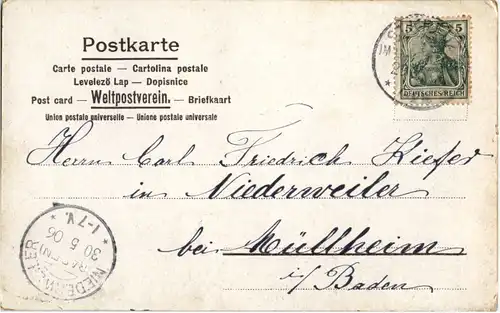 Postkarte
Carte postale — Cartolina postale
Levelező Lap — Dopisnice
Post card — Weltpostverein. — Briefkaart
Union postale universelle — Unione postale universale
5 5
DEUTSCHES REICH
Herrn Carl Friedrich Kiefer
in Niederweiler
bei Müllheim
i/Baden
1-7V.
30 5 06
(BADEN)
NIEDERWEILER